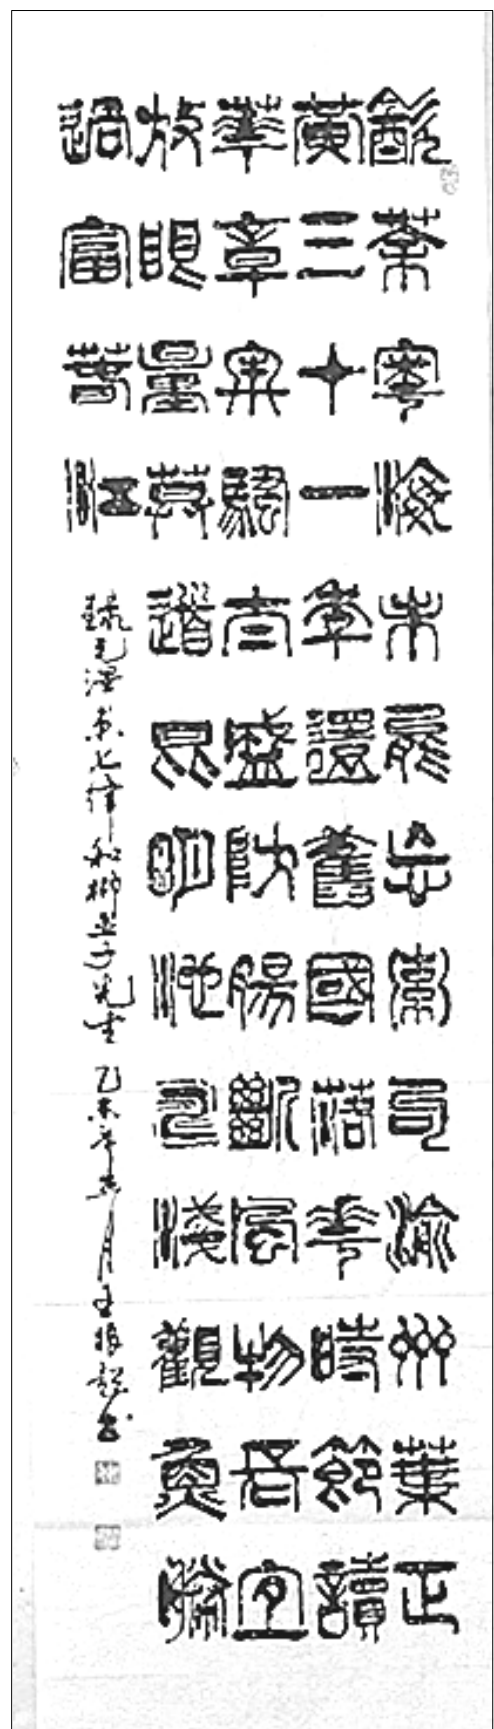 飲茶粵海未能忘索句渝州葉正
黃三十一年還舊國落花時節讀
華章牢騷太盛防腸斷風物長宜
放眼量莫道昆明池水淺觀魚勝
過富春江
錄毛澤東七律和柳亞子先生 乙未年月王振書